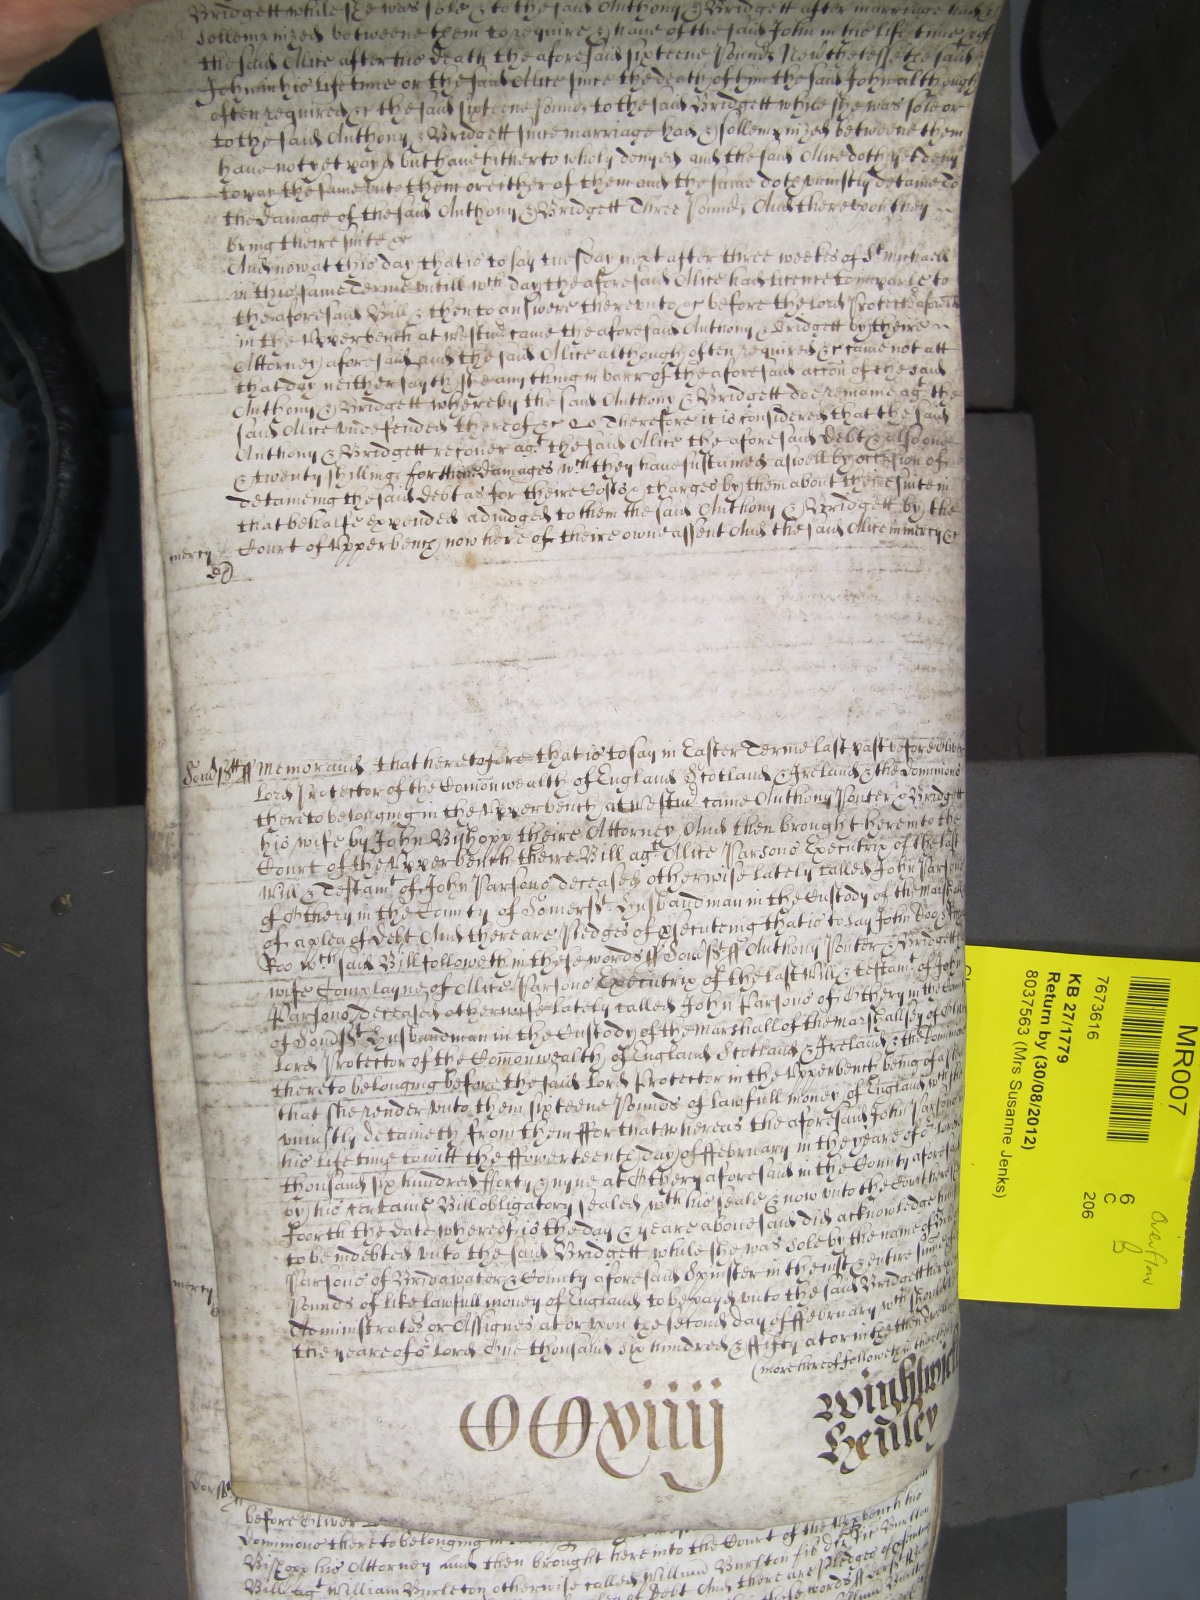 Bridgett while she was sole & to the said Anthony & Bridgett after marriage had &
sollemnized betweene them to require & have of the said John in his life time & of
the said Alice after his death the aforesaid sixteene pounds Neverthelesse the said
John in his life time or the said Alice since the death of him the said John although
often required &c the said sixteene pounds to the said Bridgett while she was sole or
to the said Anthony & Bridgett since marriage had & sollemnized betweene them
have not yet payd but have hitherto wholy denyed and the said Alice doth yet deny
to pay the same unto them or either of them and the same doth uniustly detaine To
the damage of the said Anthony & Bridgett Three pounds And thereupon they
bring theire suite &c
And now at this day that is to say tuesday next after three weekes of St Michaell
in this same Terme untill wch day the aforesaid Alice had licence to imparle to
the aforesaid Bill & then to answere thereunto &c before the Lord Protector aforesaid
in the Upperbench at Westmr came the aforesaid Anthony & Bridgett by theire
Attorney aforesaid and the said Alice although often required &c came not att
that day neither sayth she any thing in barr of the aforesaid accon of the said
Anthony & Bridgett whereby the said Anthony & Bridgett doe remaine agt the
said Alice undefended thereof &c Therefore it is considered that the said
Anthony & Bridgett recover agt the said Alice the aforesaid debt & also one
& twenty shillings for theire damages wch they have sustained aswell by occasion of
detaineing the said debt as for theire Costs & charges by them about theire suite in
that behalfe expended adiudged to them the said Anthony & Bridgett by the
Court of Upperbench now here of theire owne assent And the said Alice in mercy &c
mercy
Memorand that heretofore that is to say in Easter Terme last past before Oliver
Lord Protector of the Comonwealth of England Scotland & Ireland & the Dominions
thereto belonging in the Upperbench at Westmr came Anthony Ponter & Bridgett
his wife by John Bishopp theire Attorney And then brought here into the
Court of the Upperbench theire Bill agt Alice Parsons Executrix of the last
Will & Testamt of John Parsons deceased otherwise lately called John Parsons
of Othery in the County of Somerst husbandman in the Custody of the Marshall
of a plea of Debt And there are Pledges of prosecuteing that is to say John Doo &
Roo wch said Bill followeth in these words ff Somst ff Anthony Ponter & Bridgett
wife Complayne of Alice Parsons Executrix of the last Will & testamt of John
Parsons deceased otherwise lately called John Parsons of Othery in the County
of Somst husbandman in the Custody of the Marshall of the Marshalsey of Oliver
Lord Protector of the Comonwealth of England Scotland & Ireland & the Dominions
thereto belonging before the said Lord Protector in the Upperbench being of a plea
that she render unto them sixteene Pounds of lawfull money of England wch she
uniustly detaineth from them ffor that whereas the aforesaid John Parsons in
his life time to witt the ffowerteenth day of ffebruary in the yeare of or Lord
thousand six hundred fforty & nyne at Othery aforesaid in the County aforesaid
by his certaine Bill obligatory sealed wth his seale & now unto the Court here
foorth the date whereof is the day & yeare above said did acknowledge himselfe
to be indebted unto the said Bridgett while she was sole by the name of Bridgett
Parsons of Bridgwater & County aforesaid Spinster in the iust & entire summe of
Pounds of like lawfull money of England to be payd unto the said Bridgett her
Administrators or Assignes at or upon the second day of ffebruary wch should
the yeare of or Lord One thousand six hundred & ffifty at or in the then dwelling
(more hereof followeth in the other
mercy
Winchlwich
Henley
before Oliver
Dominions thereto belonging in
Bishopp his Attorney And then brought here into the Court of the Upperbench his
Bill agt William Burleton otherwise called William Burlton
plea of Debt And there are Pledges of
these words ff
MR007
7673616
KB 27/1779
Return by (30/08/2012)
8037563 (Mrs Susanne Jenks)
6
C
206
Overflow
B